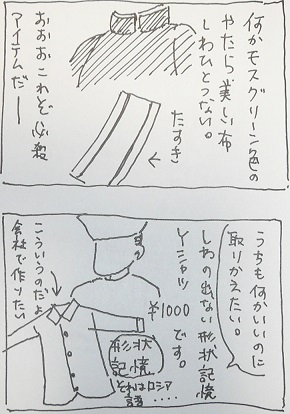 何かモスグリーン色の
やたら美しい布
しわひとつない。
たすき
おおおこれぞ必殺
アイテムだー
うちも何かいいのに
取りかえたい。
しわの出ない形状記憶
Yシャツ
¥1000
です。
形状
記憶
それはロシア
語....
こういうのだよ
会社で作りたい